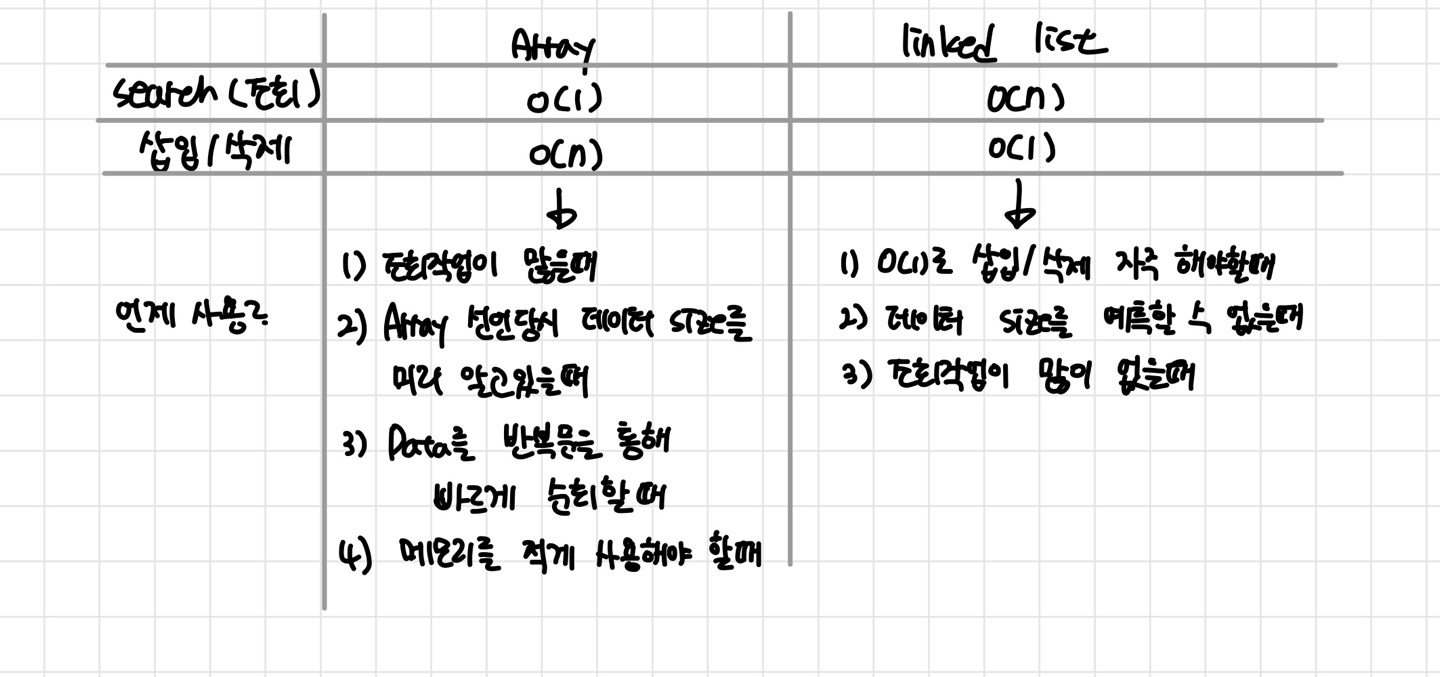 Array linked list
search (조회) O(1) O(n)
삽입/삭제 O(n) O(1)
언제 사용?
1) 조회작업이 많을때
2) Array 선언당시 데이터 size를
미리 알고있을때
3) Data를 반복문을 통해
빠르게 순회할때
4) 메모리를 적게 사용해야 할때
1) O(1)로 삽입/삭제 자주 해야할때
2) 데이터 size를 예측할 수 없을때
3) 조회작업이 많이 없을때